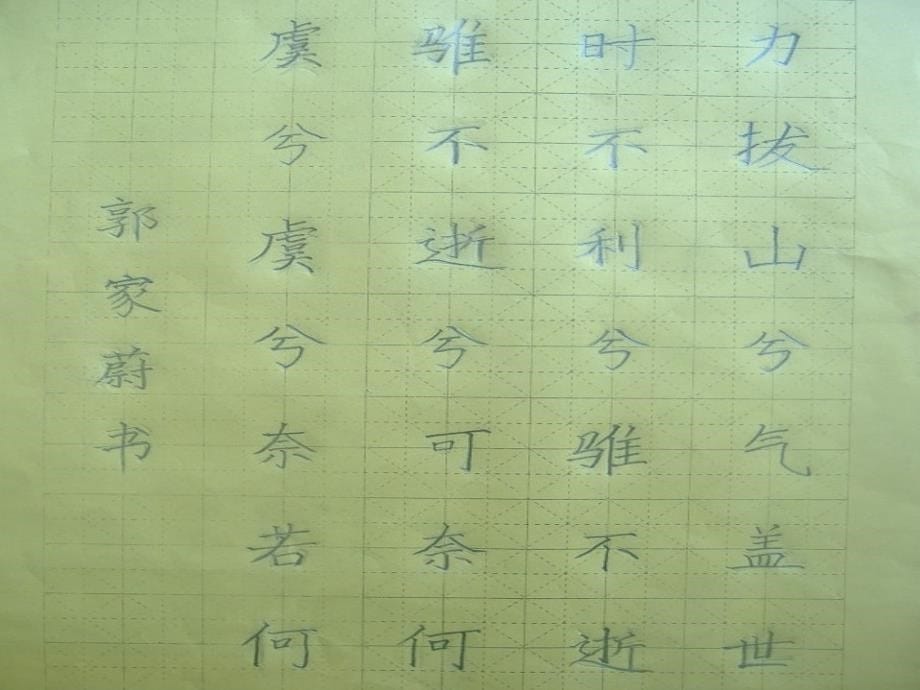 力拔山兮气盖世
时不利兮骓不逝
骓不逝兮可奈何
虞兮虞兮奈若何
郭家蔚书